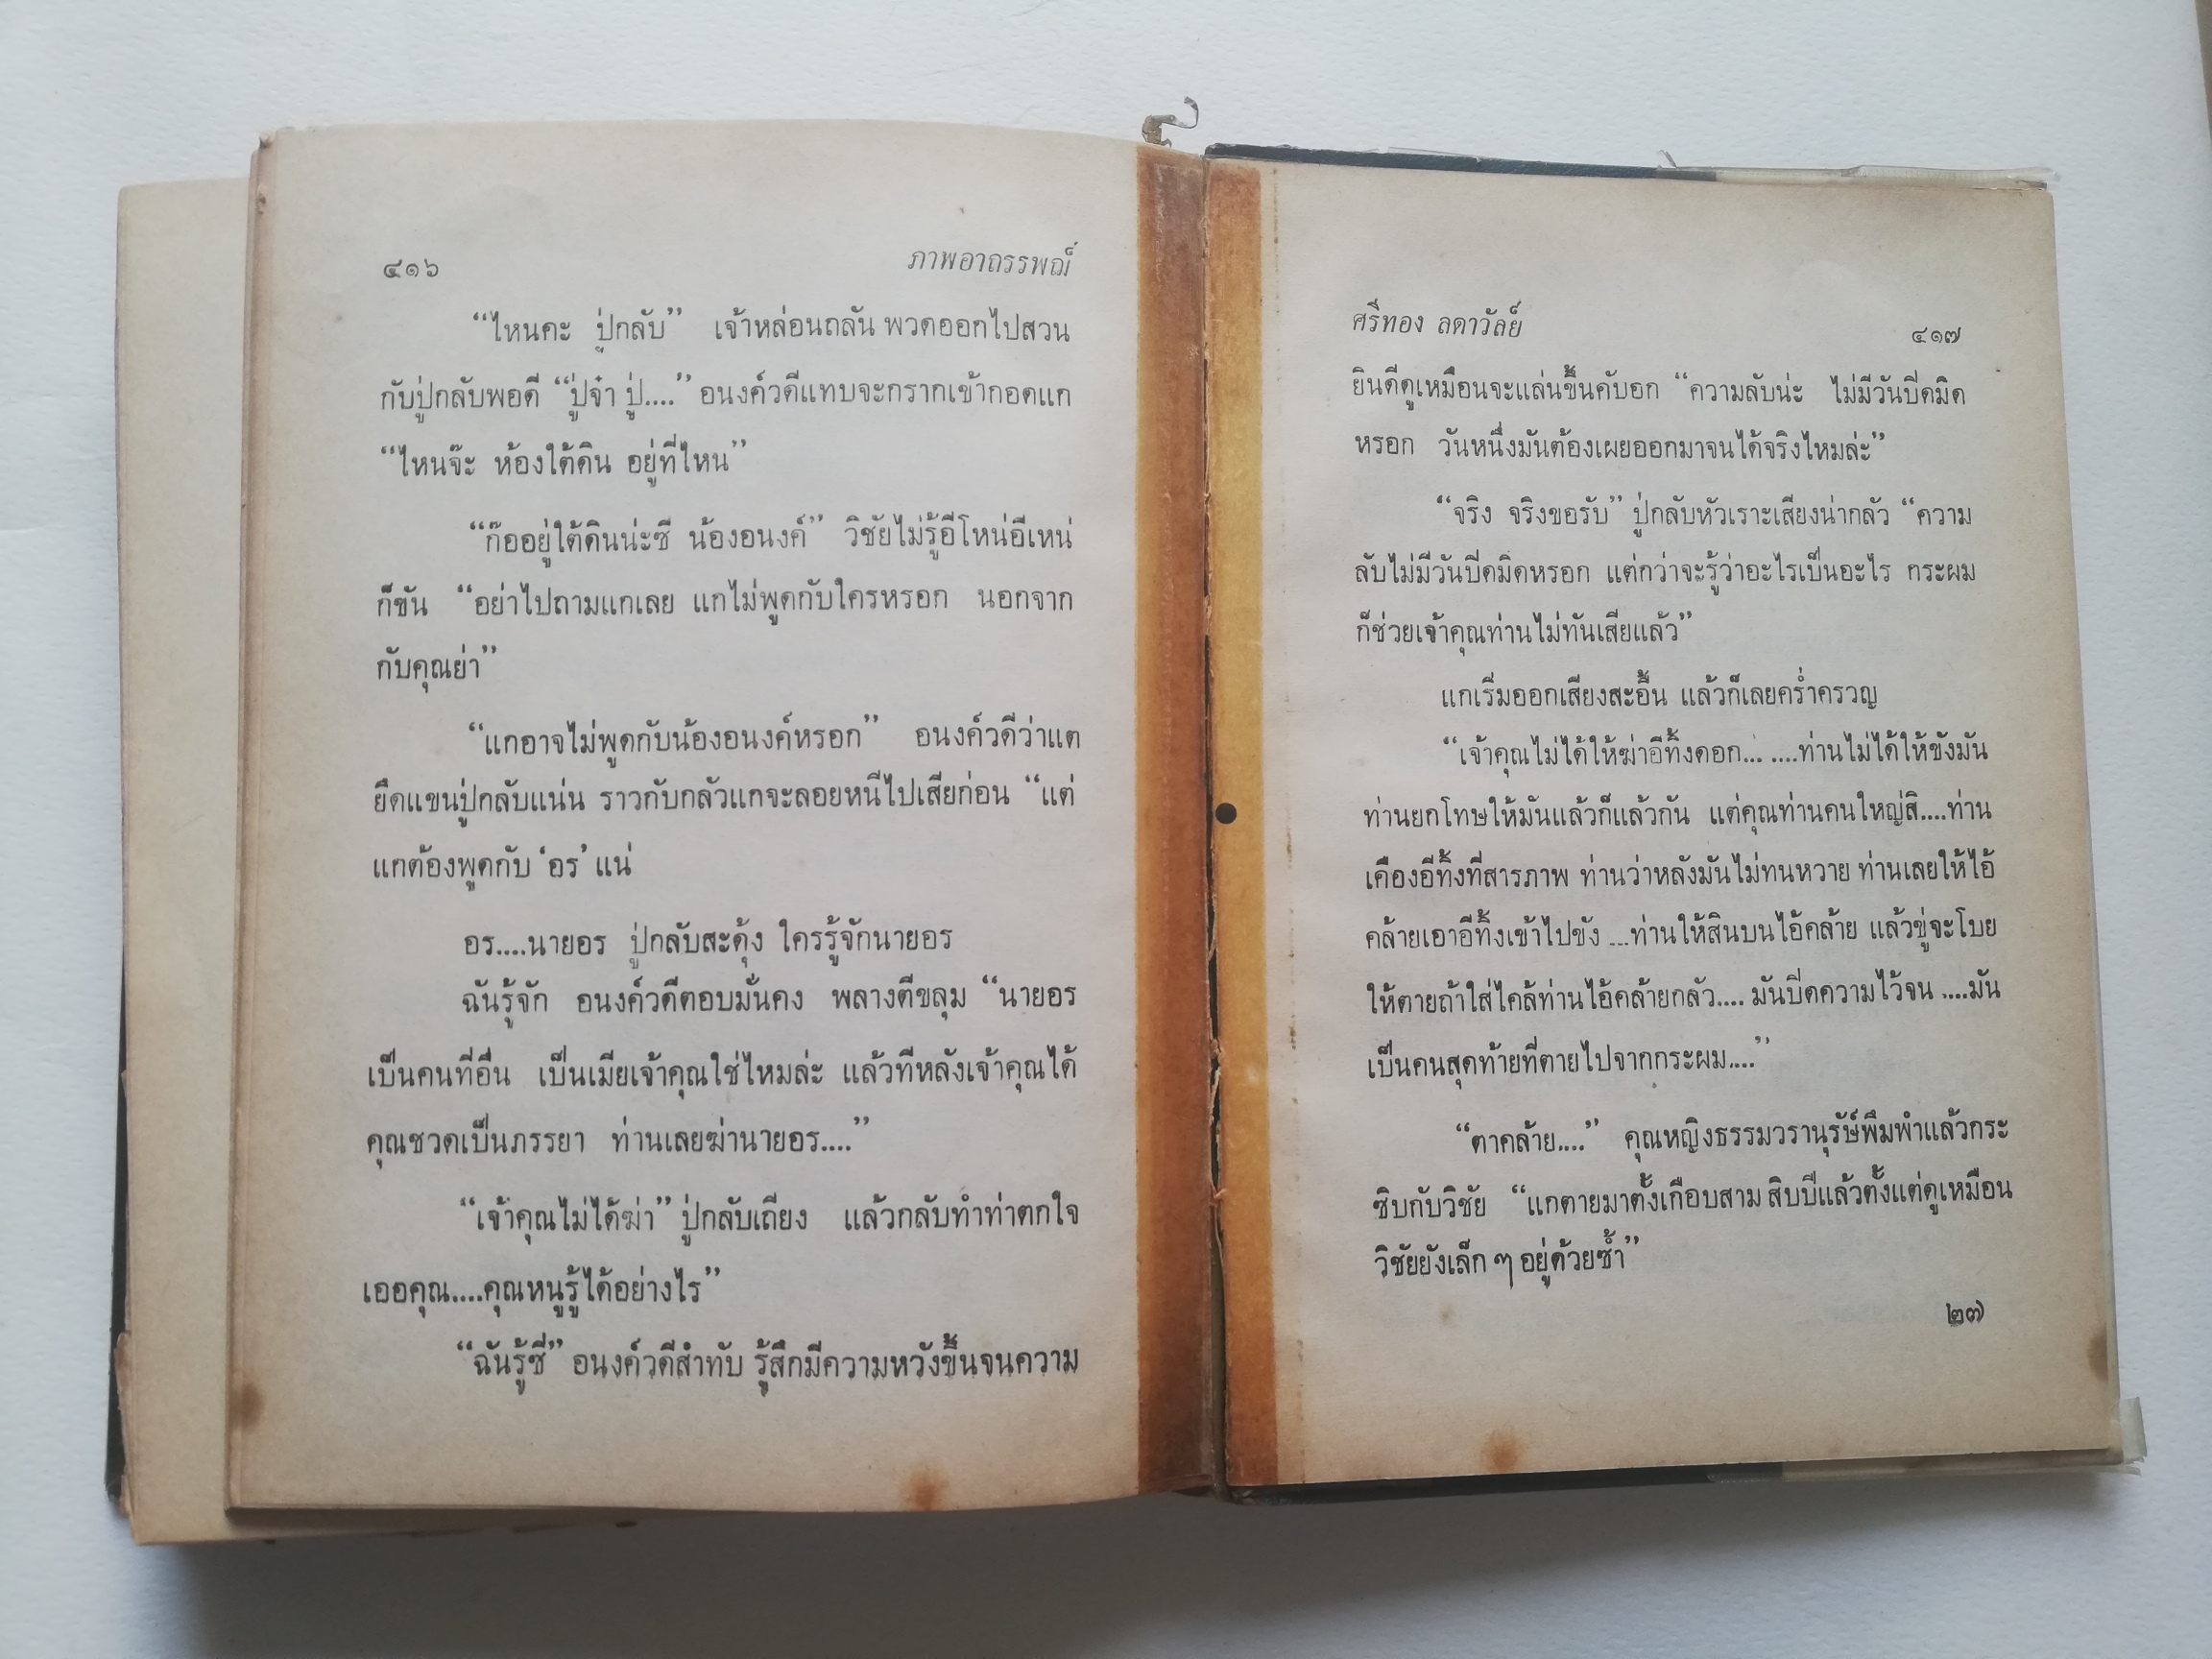 ๔๑๖ ภาพอาถรรพณ์
“ไหนคะ ปู่กลับ” เจ้าหล่อนถลัน พวดออกไปสวน
กับปู่กลับพอดี “ปู่จ๋า ปู่....” อนงค์วดีแทบจะกรากเข้ากอดแก
“ไหนจ๊ะ ห้องใต้ดิน อยู่ที่ไหน”
“ก๊ออยู่ใต้ดินน่ะซี น้องอนงค์” วิชัยไม่รู้อีโหน่อีเหน่
ก็ขัน “อย่าไปถามแกเลย แกไม่พูดกับใครหรอก นอกจาก
กับคุณย่า”
“แกอาจไม่พูดกับน้องอนงค์หรอก” อนงค์วดีว่าแต
ยึดแขนปู่กลับแน่น ราวกับกลัวแกจะลอยหนีไปเสียก่อน “แต่
แกต้องพูดกับ ‘อร’ แน่
อร....นายอร ปู่กลับสะดุ้ง ใครรู้จักนายอร
ฉันรู้จัก อนงค์วดีตอบมั่นคง พลางตีขลุม “นายอร
เป็นคนที่อื่น เป็นเมียเจ้าคุณใช่ไหมล่ะ แล้วทีหลังเจ้าคุณได้
คุณชวดเป็นภรรยา ท่านเลยฆ่านายอร....”
“เจ้าคุณไม่ได้ฆ่า” ปู่กลับเถียง แล้วกลับทำท่าตกใจ
เออคุณ....คุณหนูรู้ได้อย่างไร”
“ฉันรู้ซี่” อนงค์วดีสำทับ รู้สึกมีความหวังขึ้นจนความ
ศรีทอง ลดาวัลย์ ๔๑๗
ยินดีดูเหมือนจะแล่นขึ้นคับอก “ความลับน่ะ ไม่มีวันปิดมิด
หรอก วันหนึ่งมันต้องเผยออกมาจนได้จริงไหมล่ะ”
“จริง จริงขอรับ” ปู่กลับหัวเราะเสียงน่ากลัว “ความ
ลับไม่มีวันปิดมิดหรอก แต่กว่าจะรู้ว่าอะไรเป็นอะไร กระผม
ก็ช่วยเจ้าคุณท่านไม่ทันเสียแล้ว”
แกเริ่มออกเสียงสะอื้น แล้วก็เลยคร่ำครวญ
“เจ้าคุณไม่ได้ให้ฆ่าอีทิ้งดอก... ....ท่านไม่ได้ให้ขังมัน
ท่านยกโทษให้มันแล้วก็แล้วกัน แต่คุณท่านคนใหญ่สิ....ท่าน
เคืองอีทิ้งที่สารภาพ ท่านว่าหลังมันไม่ทนหวาย ท่านเลยให้ไอ้
คล้ายเอาอีทิ้งเข้าไปขัง ...ท่านให้สินบนไอ้คล้าย แล้วขู่จะโบย
ให้ตายถ้าใส่ไคล้ท่านไอ้คล้ายกลัว.... มันปิดความไว้จน ....มัน
เป็นคนสุดท้ายที่ตายไปจากกระผม....”
“ตาคล้าย....” คุณหญิงธรรมวรานุรัษ์พึมพำแล้วกระ
ซิบกับวิชัย “แกตายมาตั้งเกือบสาม สิบปีแล้วตั้งแต่ดูเหมือน
วิชัยยังเล็ก ๆ อยู่ด้วยซ้ำ”
๒๗